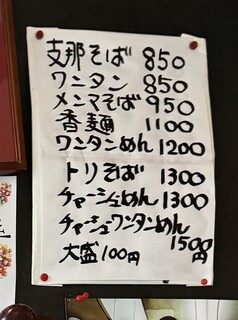 支那そば 850
ワンタン 850
メンマそば 950
香麺 1100
ワンタンめん 1200
トリそば 1300
チャーシューめん 1300
チャーシューワンタンめん
1500円
大盛100円